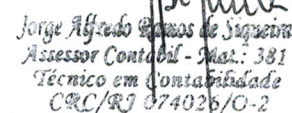 Jorge Alfredo Ramos de Siqueira
Assessor Contábil - Mat.: 381
Técnico em Contabilidade
CRC/RJ 074026/O-2